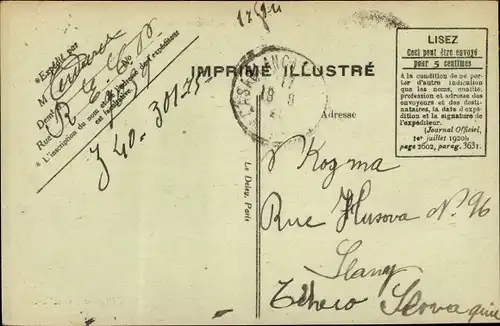 IMPRIMÉ ILLUSTRÉ
LISEZ
Ceci peut être envoyé
pour 5 centimes
à la condition de ne por-
ter d'autre indication
que les noms, qualité,
profession et adresse des
envoyeurs et des desti-
nataires, la date d'expé-
dition et la signature de
l'expéditeur.
(Journal Officiel,
1er juillet 1920),
page 2602, parag. 3631.
*Expédié par
M
Demt
Rue
No
* L'inscription du nom et de l'adresse de l'expéditeur
est facultative.
J 40.30125
Adresse
Le Deley, Paris
Kogma
Rue Husova N. 96
Slany
Tcheco Slovaquie